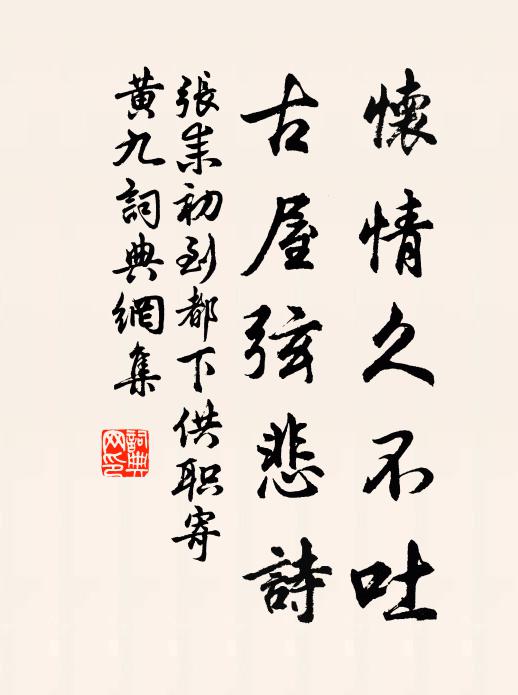 懷情久不吐
古屋弦悲詩
張耒初到都下供职寄
黄九詞典網集
詞典
网印